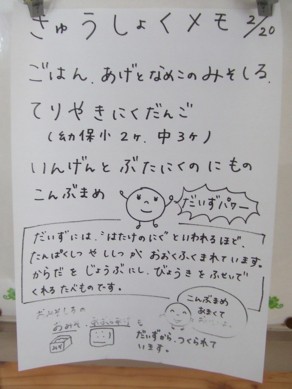 きゅうしょくメモ 2/20
ごはん、あげとなめこのみそしる
てりやきにくだんご
(幼保小2ヶ、中3ヶ)
いんげんとぶたにくのにもの
こんぶまめ
だいずパワー
だいずには、"はたけのにく"といわれるほど、
たんぱくしつやししつがおおくふくまれています。
からだをじょうぶにし、びょうきをふせいで
くれるたべものです。
こんぶまめ
あまくて
だいずから、つくられて
います。